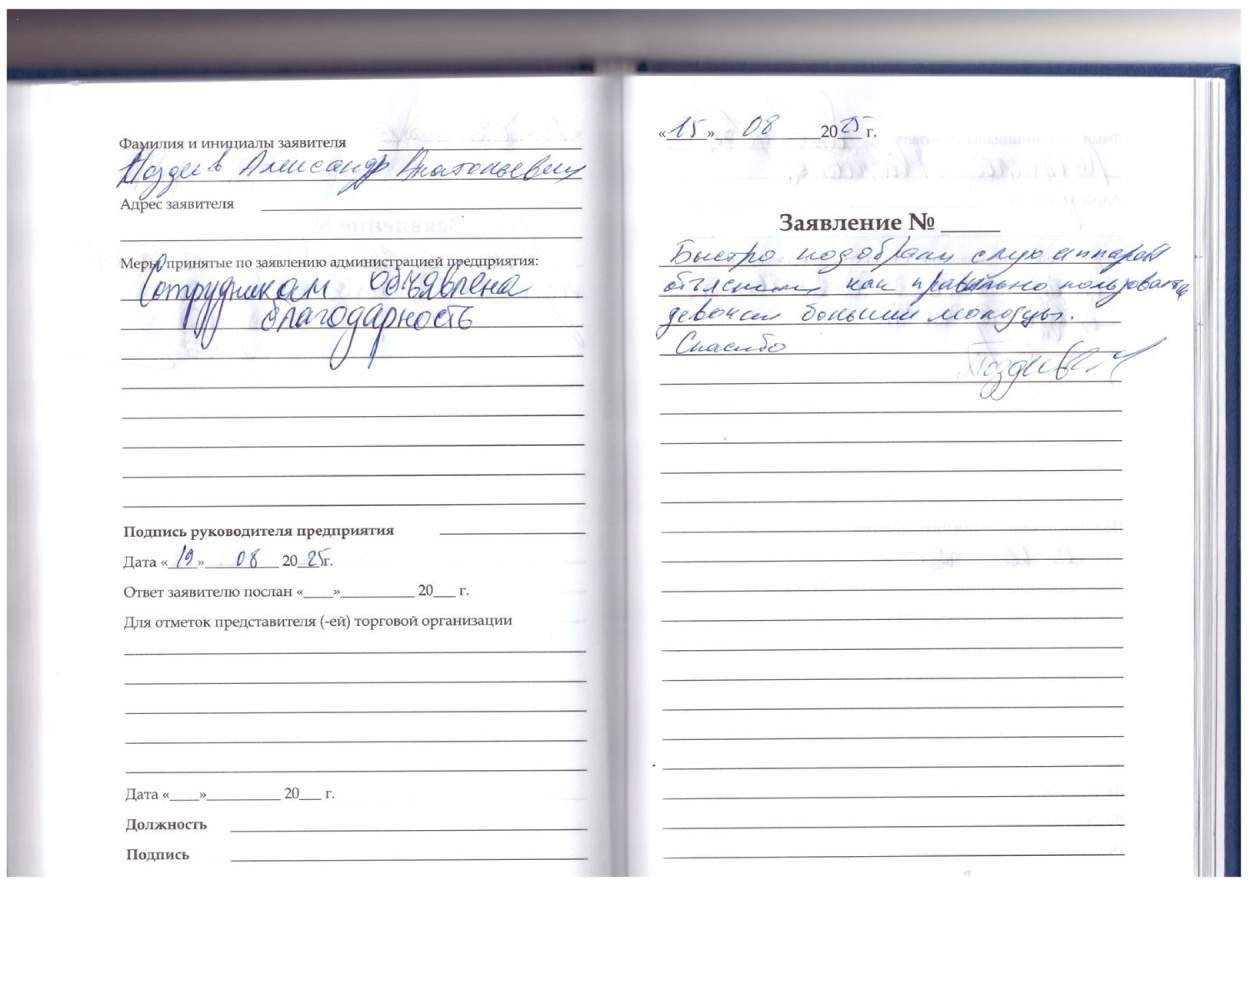 Фамилия и инициалы заявителя
Поздеев Александр Анатольевич
Адрес заявителя
Меры, принятые по заявлению администрацией предприятия:
Сотрудникам объявлена
благодарность
Подпись руководителя предприятия
Дата «19» 08 2025г.
Ответ заявителю послан «____»__________ 20___ г.
Для отметок представителя (-ей) торговой организации
Дата «____»__________ 20___ г.
Должность
Подпись
«15» 08 2025 г.
Заявление № _____
Быстро подобрали слух аппарат
объяснили как правильно пользоваться
девочки большие молодцы.
Спасибо